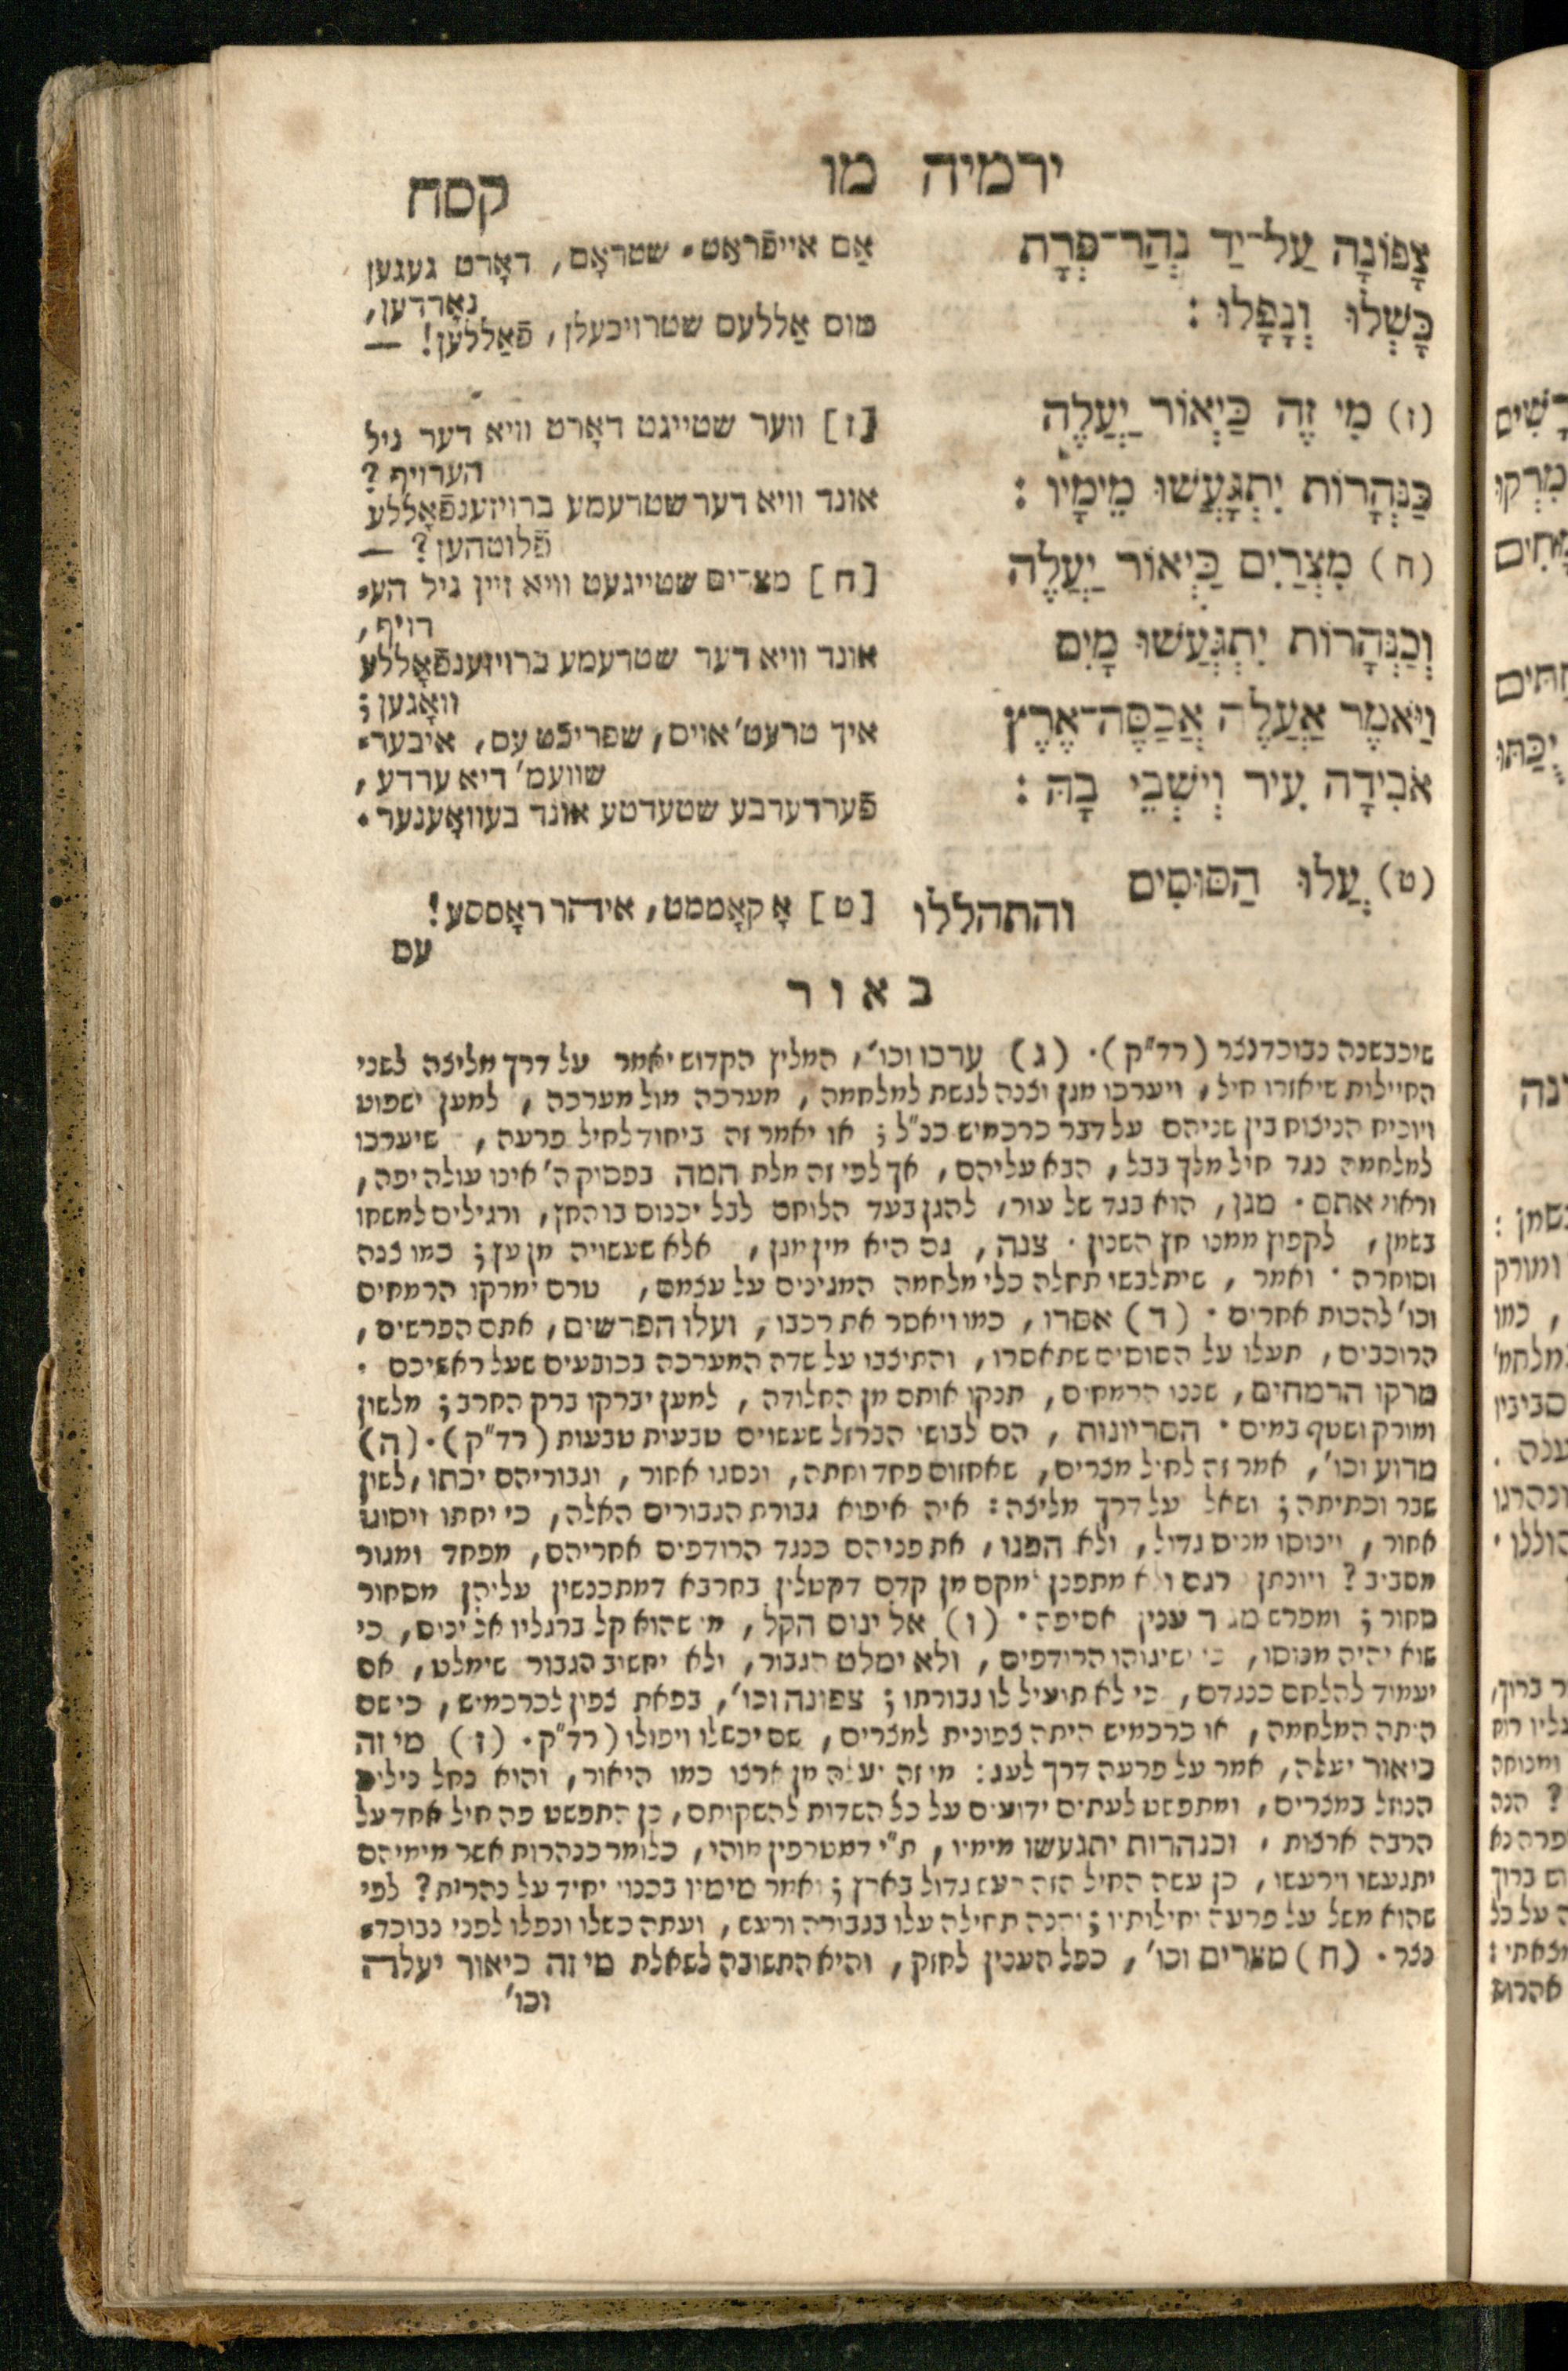 ירמיה מו
קסח
צָפוֹנָה עַל־יַד נְהַר־פְּרָת
כָּשְׁלוּ וְנָפָלוּ :
(ז) מִי זֶה כַּיְאוֹר יַעֲלֶה
כַּנְּהָרוֹת יִתְגָּעֲשׁוּ מֵימָיו :
(ח) מִצְרַיִם כַּיְאוֹר יַעֲלֶה
וְכַנְּהָרוֹת יִתְגֹּעֲשׁוּ מָיִם
וַיֹּאמֶר אַעֲלֶה אֲכַסֶּה־אֶרֶץ
אֹבִידָה עִיר וְיֹשְׁבֵי בָהּ :
(ט) עֲלוּ הַסּוּסִים
והתהללו
אַם אייפֿראַט⸗ שטראָם, דאָרט געגען
נאָרדען,
מוס אַללעס שטרויכעלן, פֿאַללען! —
[ז] ווער שטייגט דאָרט וויא דער ניל
הערויף ?
אונד וויא דער שטרעמע ברויזענפֿאָללע
פֿלוטהען ? —
[ח] מצרים שטייגעט וויא זיין ניל הע⸗
רויף,
אונד וויא דער שטרעמע ברויזענפֿאָללע
וואָגען ;
איך טרעט' אויס, שפריכט עס, איבער⸗
שוועמ' דיא ערדע,
פֿערדערבע שטעדטע אונד בעוואָענער.
[ט] אָ קאָממט, איהר ראָססע!
עם
באור
שיכבשנה נבוכדנצר (רד"ק). (ג) ערכו וכו', המליץ הקדוש יאמר על דרך מליצה לשני
החיילות שיאזרו חיל, ויערכו מגן וצנה לגשת למלחמה, מערכה מול מערכה, למען ישפוט
ויוכיח הניצוח בין שניהם על דבר כרכמיש כנ"ל ; או יאמר זה ביחוד לחיל פרעה, שיערכו
למלחמה נגד חיל מלך בבל, הבא עליהם, אך לפי זה מלת המה בפסוק ה' אינו עולה יפה,
וראוי אתם. מגן, הוא בגד של עור, להגן בעד הלוחם לבל יכנוס בו החץ, ורגילים למשחו
בשמן, לקפוץ ממנו חץ השנון. צנה, גם היא מין מגן, אלא שעשויה מן עץ ; כמו צנה
וסוחרה. ואמר, שיתלבשו תחלה כלי מלחמה המגינים על עצמם, טרם ימרקו הרמחים
וכו' להכות אחרים. (ד) אסרו, כמו ויאסר את רכבו, ועלו הפרשים, אתם הפרשים,
הרוכבים, תעלו על הסוסים שתאסרו, והתיצבו על שדה המערכה בכובעים שעל ראשיכם.
מרקו הרמחים, שננו הרמחים, תנקו אותם מן החלודה, למען יברקו ברק החרב ; מלשון
ומורק ושטף במים. הסריונות, הם לבושי הברזל שעשוים טבעות טבעות (רד"ק). (ה)
מדוע וכו', אמר זה לחיל מצרים, שאחזום פחד וחתה, ונסגו אחור, וגבוריהם יכתו, לשון
שבר וכתיתה ; ושאל על דרך מליצה : איה איפוא גבורת הגבורים האלה, כי יחתו ויסוגו
אחור, וינוסו מנוס גדול, ולא הפנו, את פניהם כנגד הרודפים אחריהם, מפחד ומגור
מסביב ? ויונתן רגם ולא מתפנן למקם מן קדם דקטלין בחרבא דמתכנשין עליהן מסחור
סחור ; ומפרש מגור ענין אסיפה. (ו) אל ינוס הקל, מי שהוא קל ברגליו אל ינוס, כי
שוא יהיה מנוסו, כי ישיגוהו הרודפים, ולא ימלט הגבור, ולא יחשוב הגבור שימלט, אם
יעמוד להלחם כנגדם, כי לא תועיל לו גבורתו ; צפונה וכו', בפאת צפון לכרכמיש, כי שם
היתה המלחמה, או כרכמיש היתה צפונית למצרים, שם יכשלו ויפולו (רד"ק. (ז) מי זה
כיאור יעלה, אמר על פרעה דרך לעג : מי זה יעלה מן ארצו כמו היאור, והוא נחל נילוס
הנוזל במצרים, ומתפשט לעתים ידועים על כל השדות להשקותם, כן התפשט פה חיל אחד על
הרבה ארצות, וכנהרות יתגעשו מימיו, ת"י דמטרפין מוהי, כלומר כנהרות אשר מימיהם
יתגעשו וירעשו, כן עשה החיל הזה רעש גדול בארץ ; ואמר מימיו בכנוי יחיד על נהרות ? לפי
שהוא משל על פרעה וחילותיו ; והנה תחילה עלו בגבורה ורעש, ועתה כשלו ונפלו לפני נבוכד⸗
נצר. (ח) מצרים וכו', כפל הענין לחזק, והיא התשובה לשאלת מי זה כיאור יעלה
וכו'